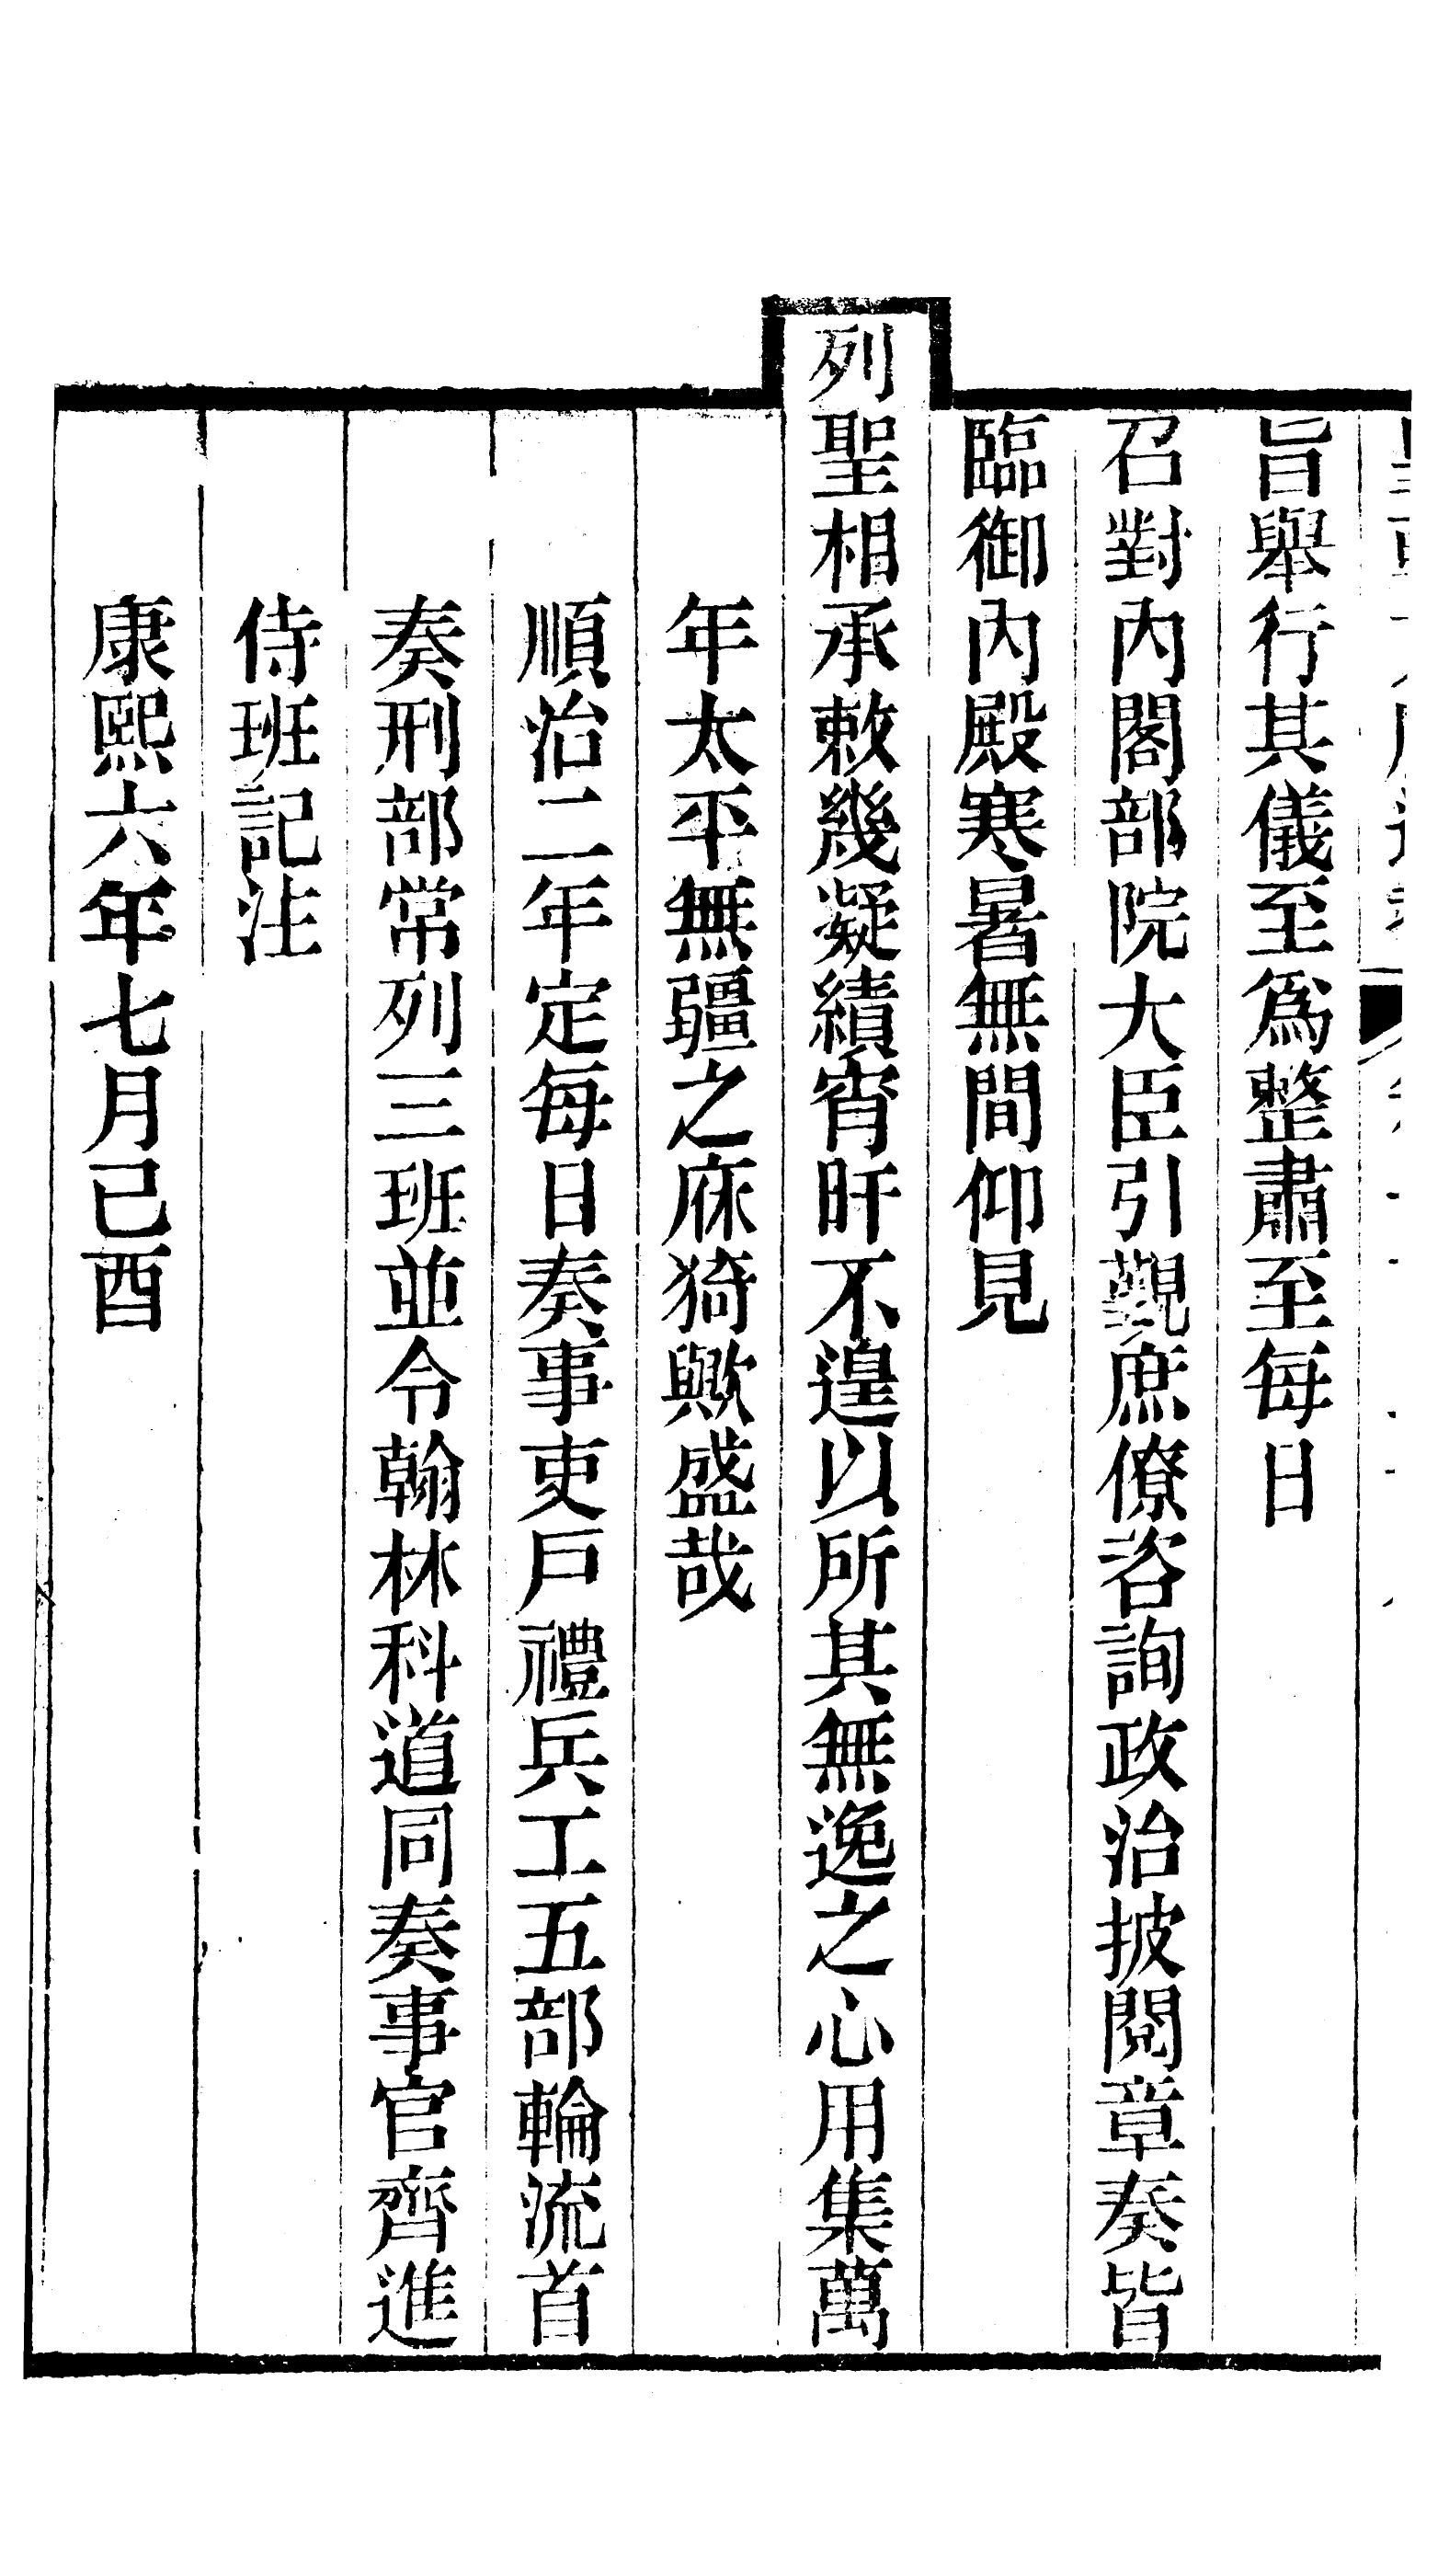 旨舉行其儀至爲整肅至每日
召對内閣部院大臣引觀庶僚咨詢政治披閱章奏皆
臨御内殿寒暑無間仰見
列聖相承敕幾凝績宵旰不遑以所其無逸之心用集萬
年太平無疆之庥猗歟盛哉
順治二年定每日奏事吏戸禮兵工五部輪流首
奏刑部常列三班並令翰林科道同奏事官齊進
侍班記注
康熙六年七月己酉